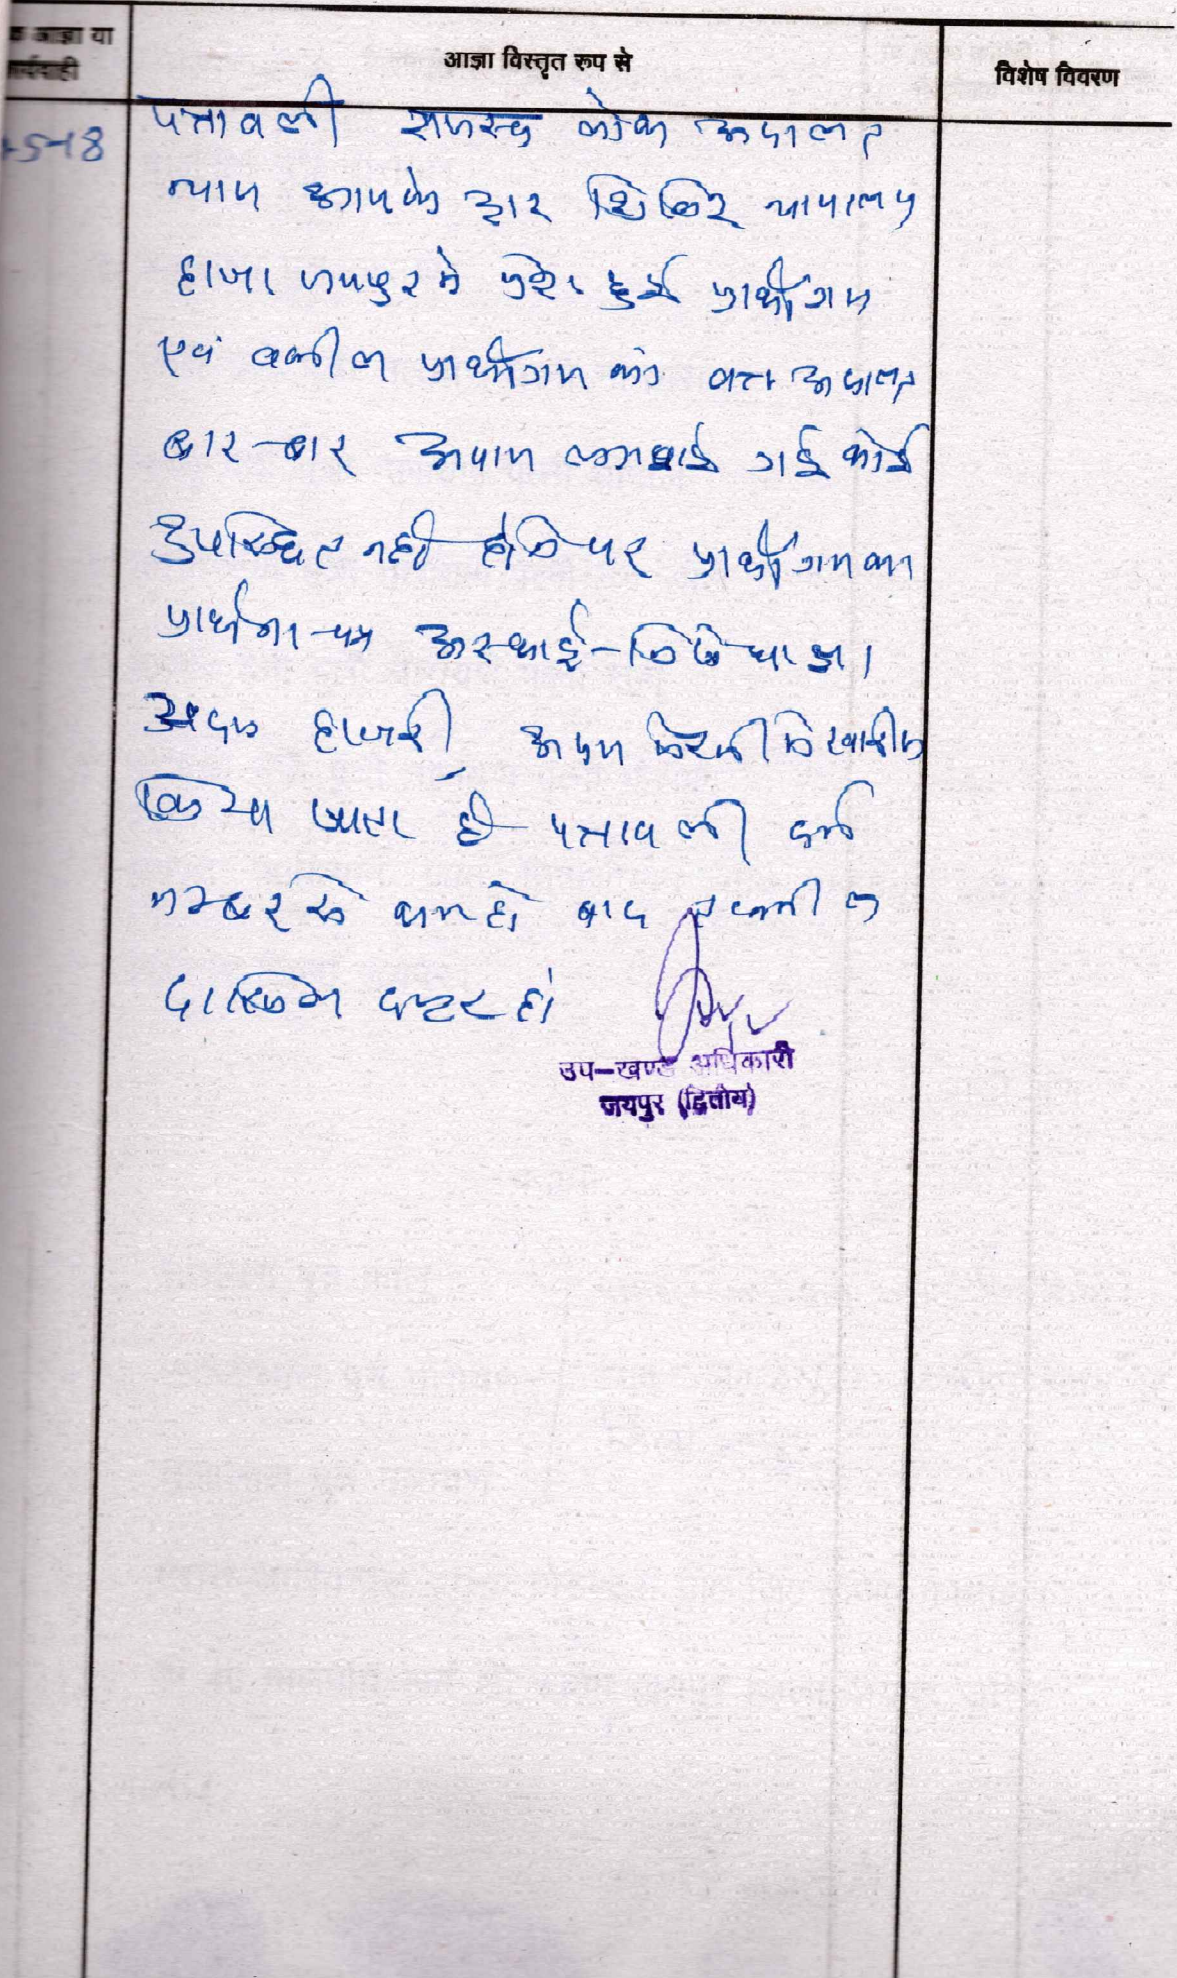 क आज्ञा या
र्यवाही
आज्ञा विस्तृत रूप से
विशेष विवरण
5-18
पत्रावली राजस्व लोक अदालत
न्याय आपके द्वार शिविर न्यायालय
हाजा जयपुर में पेश हुई प्रार्थीगण
एवं वकील प्रार्थीगण को वक्त अदालत
बार-बार आवाज लगवाई गई कोई
उपस्थित नहीं होने पर प्रार्थीगण का
प्रार्थना-पत्र अस्थाई-निषेधाज्ञा
अदम हाजरी, अदम पैरवी में खारीज
किया जाता है पत्रावली दर्ज
नम्बर से कम हो बाद तकमील
दाखिल दफ्तर हो
उप-खण्ड अधिकारी
जयपुर (द्वितीय)